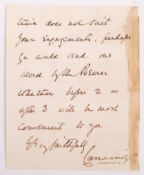 time does not suit
your Engagements, perhaps
you would send me
word by the Bearer
whether before 2 or
after 3 will be most
convenient to you.
faithfully